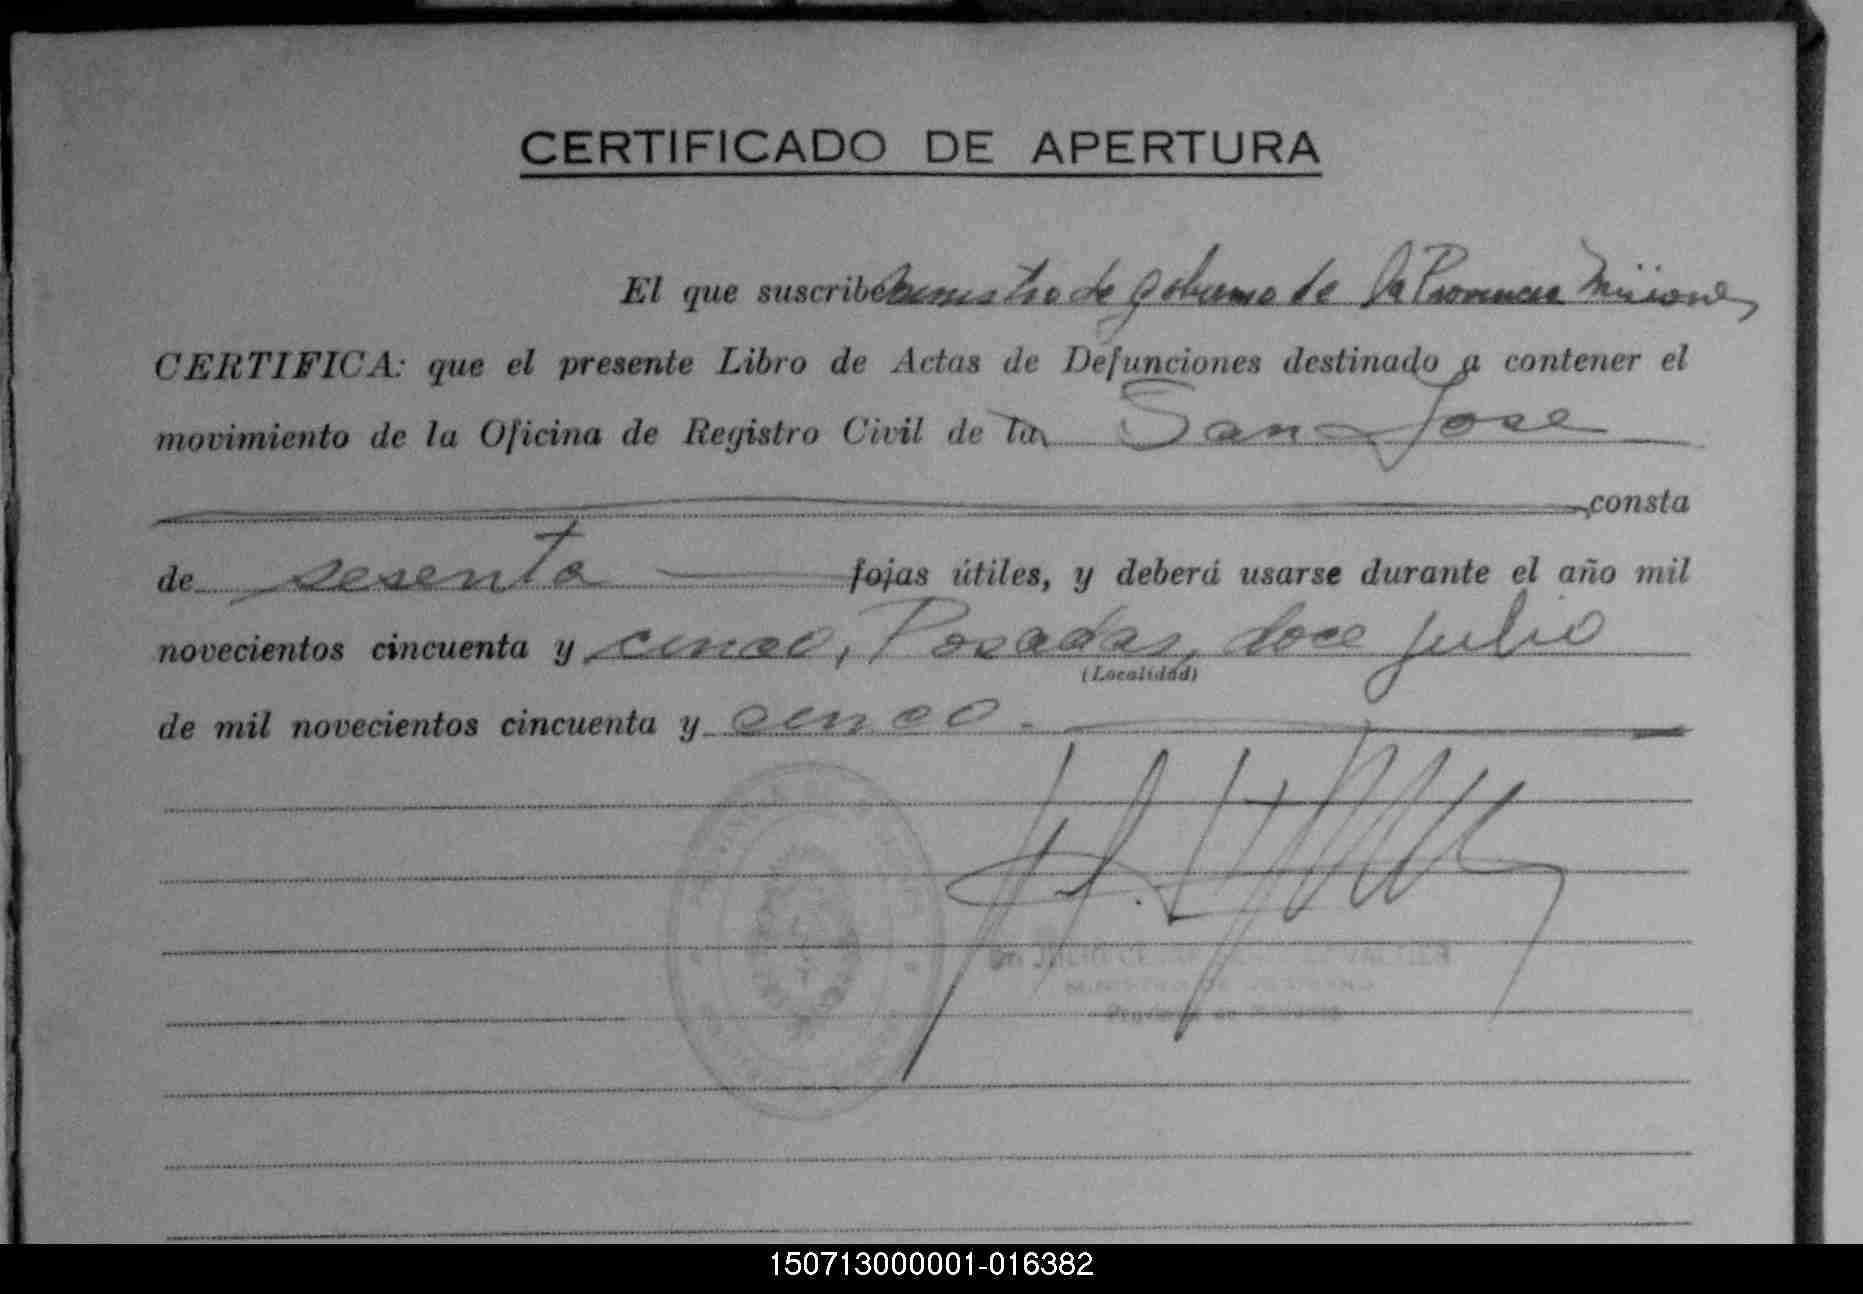 CERTIFICADO DE APERTURA
El que suscribe ministro de gobierno de la Provincia Misiones
CERTIFICA: que el presente Libro de Actas de Defunciones destinado a contener el
movimiento de la Oficina de Registro Civil de la San Jose
consta
de sesenta fojas útiles, y deberá usarse durante el año mil
novecientos cincuenta y cinco, Posadas, doce julio
(Localidad)
de mil novecientos cincuenta y cinco.
Dr. JULIO CESAR
MINISTRO DE GOBIERNO
Provincia de Misiones
150713000001-016382